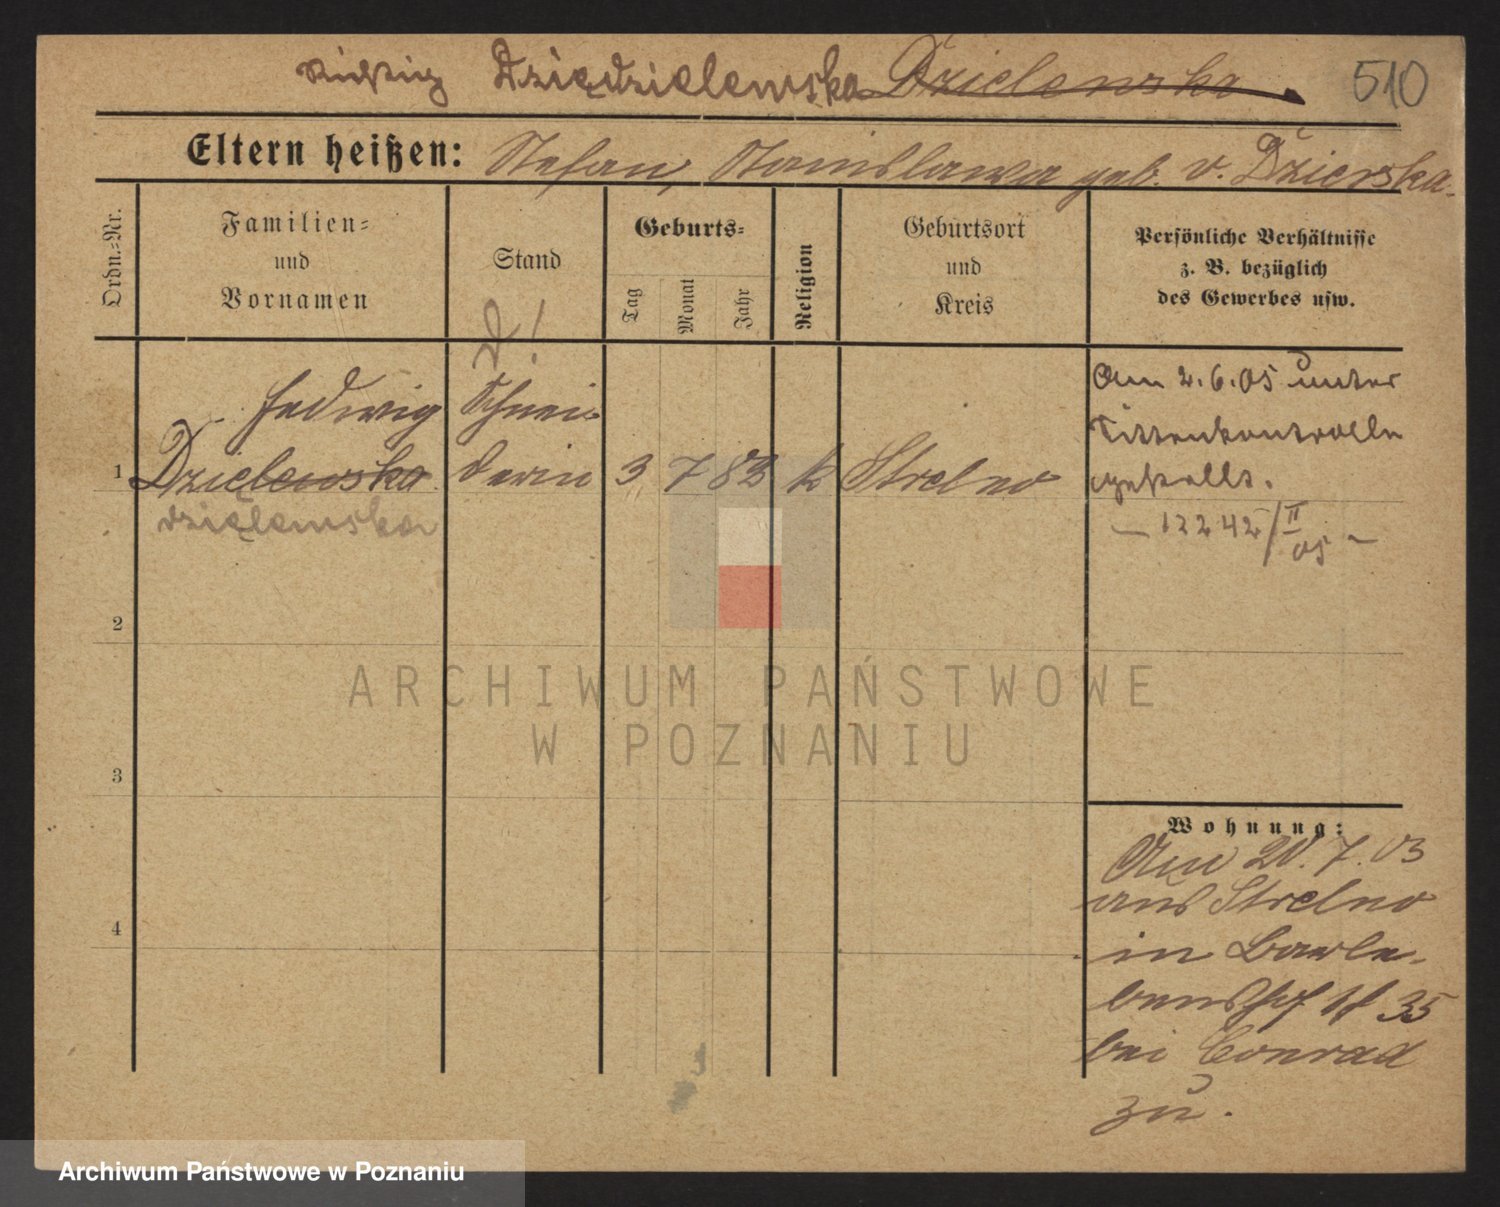 richtig Dziędzielewska Dzielewska 510
Eltern heißen: Stefan, Stanislawa geb. v. Dzierska.
Ordn.=Nr.
Familien=
und
Vornamen
Stand
Geburts=
Tag
Monat
Jahr
Religion
Geburtsort
und
Kreis
Persönliche Verhältnisse
z. B. bezüglich
des Gewerbes usw.
Hedwig
1 Dzielewska
Schnei-
derin
3 7 83
k
Strelno
Am 2.6.05 unter
Sittenkontrolle
gestellt.
– 12242/II 05 –
2
3
4
Wohnung:
Am 20.7.03
aus Strelno
in
35
bei Conrad
zu.
ARCHIWUM PAŃSTWOWE
W POZNANIU
Archiwum Państwowe w Poznaniu